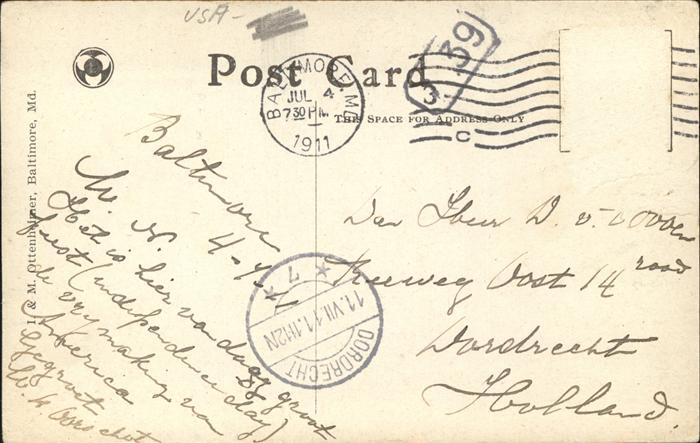 USA -
Post Card
BALTIMORE, MD.
JUL 4
7 30 PM
1911
C
3
39
THIS SPACE FOR ADDRESS ONLY
I. & M. Ottenheimer, Baltimore, Md.
Baltimore
4-7-11
M. N.
Het is hier vandaag groot
feest (independence day)
de vrymaking van
America
Gegroet
W. v. Oorschot
Den Heer D. v.
Oost 14 rood
Dordrecht
Holland.
DORDRECHT
11.VII.11.11-12N
* 7 *